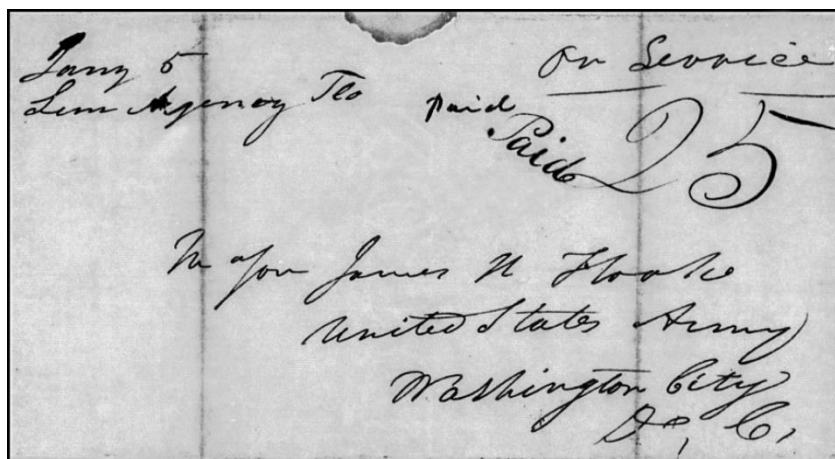 Jany 5
Sem Agency Flo
On Service
paid
Paid 25
Major James H Hooke
United States Army
Washington City
D, C,